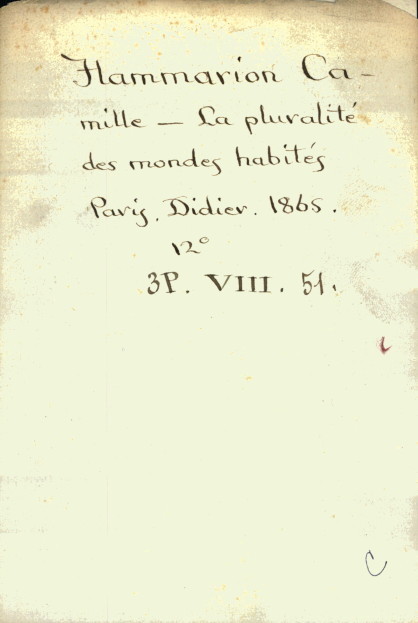 Flammarion Ca-
mille — La pluralité
des mondes habités
Paris, Didier. 1865.
12º
3P. VIII. 51.
C